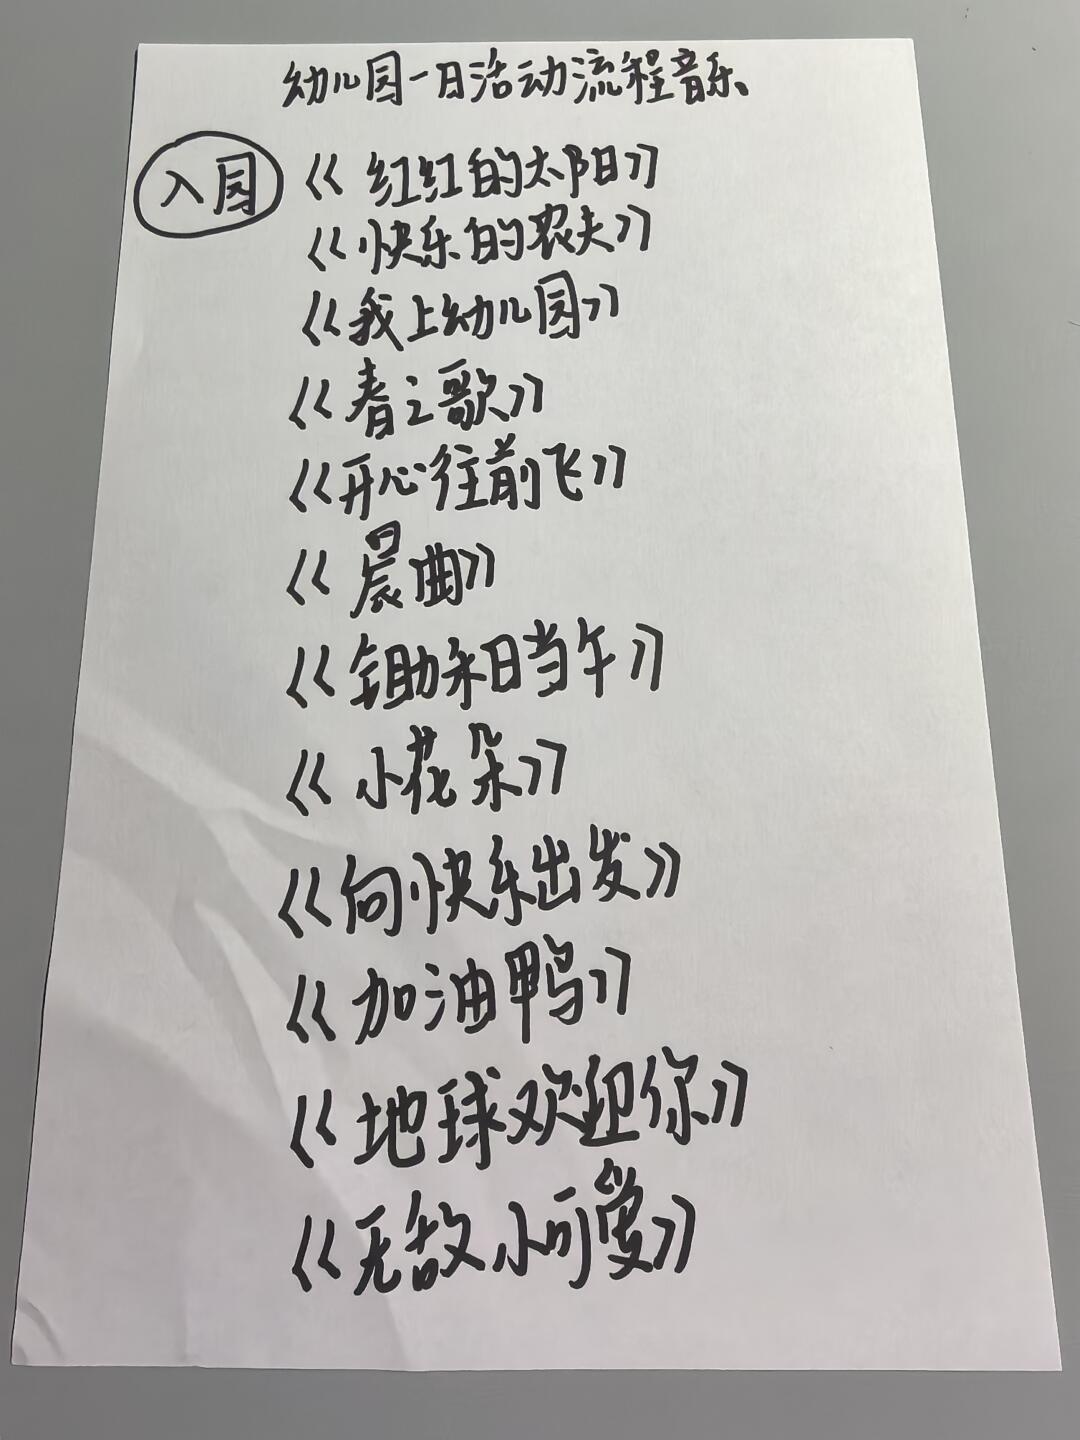 幼儿园一日活动流程音乐、
入园 《红红的太阳》
《快乐的农夫》
《我上幼儿园》
《春之歌》
《开心往前飞》
《晨曲》
《锄禾日当午》
《小花朵》
《向快乐出发》
《加油鸭》
《地球欢迎你》
《无敌小可爱》